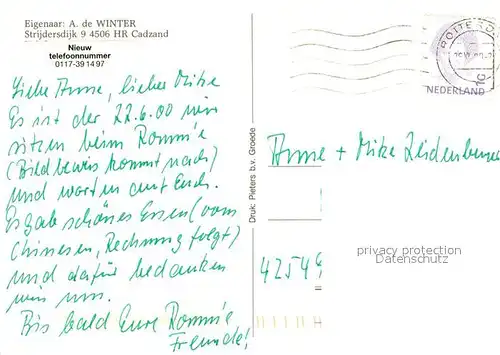 Eigenaar: A. de WINTER
Strijdersdijk 9 4506 HR Cadzand
Nieuw
telefoonnummer
0117-39 14 97
Liebe Anne, lieber Mike
Es ist der 22.6.00 wir
sitzen beim Rommé
(Bildbeweis kommt nach)
und warten auf Euch.
Es gab schönes Essen (vom
Chinesen, Rechnung folgt)
und dafür bedanken
wir uns.
Bis bald Eure Rommé
Freunde!
Druk: Pieters b.v. Groede
NEDERLAND
Anne + Mike
42549
privacy protection
Datenschutz